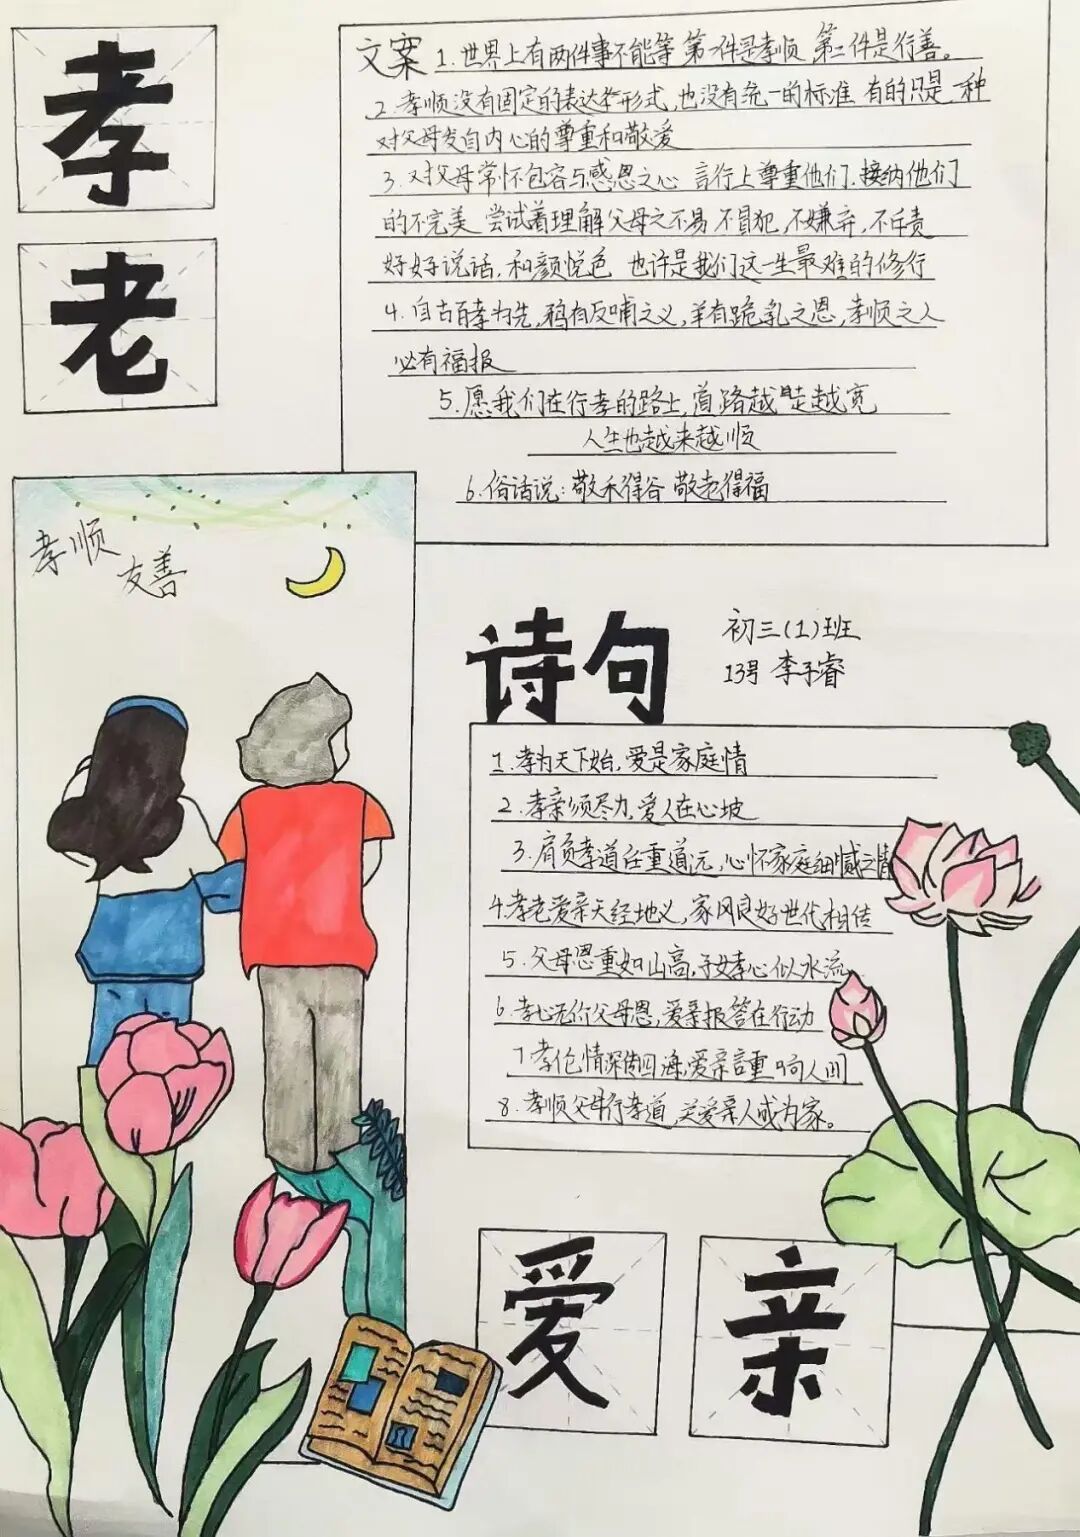 孝
老
文案 1.世界上有两件事不能等 第一件是孝顺 第二件是行善。
2.孝顺没有固定的表达形式,也没有统一的标准 有的只是一种
对父母发自内心的尊重和敬爱
3.对父母常怀包容与感恩之心 言行上尊重他们.接纳他们
的不完美 尝试着理解父母之不易 不冒犯,不嫌弃,不斥责
好好说话,和颜悦色 也许是我们这一生最难的修行
4.自古百孝为先,鸦有反哺之义,羊有跪乳之恩,孝顺之人
必有福报
5.愿我们在行孝的路上,道路越走越宽
人生也越来越顺
6.俗话说:敬禾得谷 敬老得福
孝顺
友善
诗句
初三(1)班
13号 李子睿
1.孝为天下始,爱是家庭情
2.孝亲须尽力,爱人在心坡
3.肩负孝道任重道远,心怀家庭细腻之情
4.孝老爱亲天经地义,家风良好世代相传
5.父母恩重如山高,子女孝心似水流
6.孝心无价父母恩,爱亲报答在行动
7.孝伦情深四海,爱亲言重响人间
8.孝顺父母行孝道,关爱亲人成为家。
爱
亲